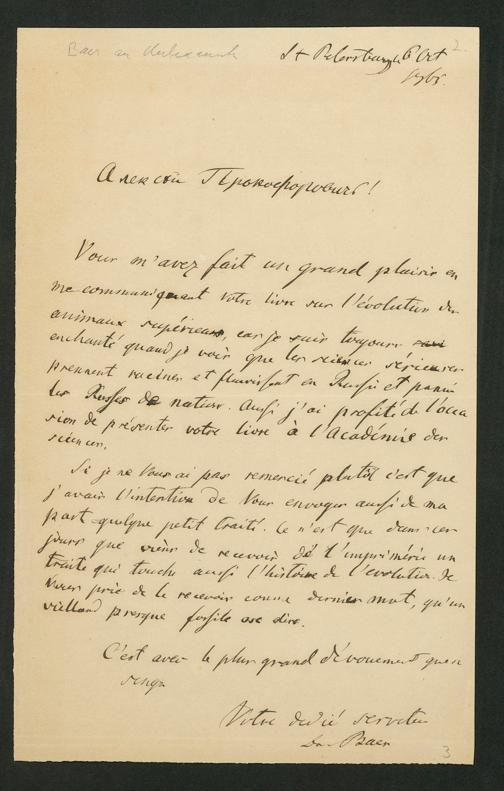 Baer an
2.
St Petersburg 6 Oct
Алексѣй Прокофоровичъ!
Vous m'avez fait un grand plaisir en
me communiquant Votre livre sur l'évolution des
animaux supérieurs, car je suis toujours
enchanté quand je vois que les sciences sérieuses
prennent racines et fleurissent en Russie et parmi
les Russes de nature. Aussi j'ai profité de l'occa
sion de présenter votre livre à l'Académie des
sciences.
Si je ne Vous ai pas remercié plutôt c'est que
j'avais l'intention de Vous envoyer aussi de ma
part quelque petit traité. Ce n'est que dans ces
jours que viens de recevoir de l'imprimérie un
traité qui touche aussi l'histoire de l'evolution. Je
Vous prie de le recevoir comme dernier mot, qu'un
vieillard presque fossile ose dire.
C'est avec le plus grand dévouement que
Votre dedié serviteur
Dr Baer
3